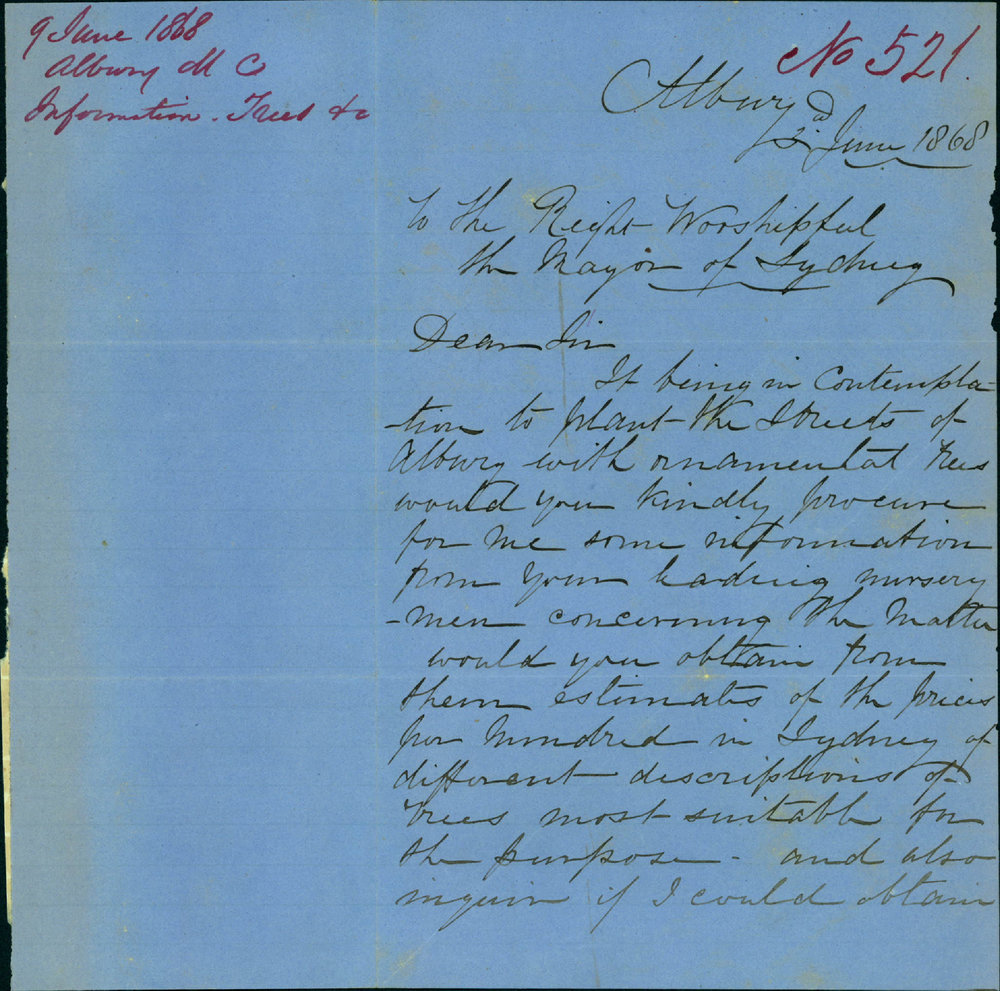 9 June 1868
Albury M C
Information. Trees &c
No 521.
Albury
2nd June 1868
To the Right Worshipful
the Mayor of Sydney
Dear Sir
It being in Contempla-
-tion to plant the Streets of
Albury with ornamental trees
would you kindly procure
for me some information
from your leading nursery
-men concerning the Matter
would you obtain from
them estimates of the prices
per hundred in Sydney of
different descriptions of
trees most suitable for
the purpose - and also
inquire if I could obtain